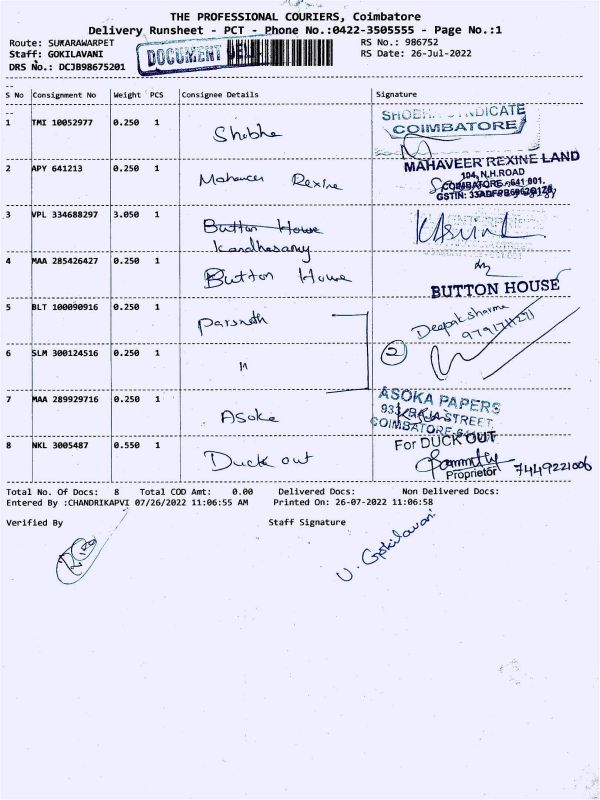 THE PROFESSIONAL COURIERS, Coimbatore
Delivery Runsheet - PCT - Phone No.:0422-3505555 - Page No.:1
Route: SUKARAWARPET RS No.: 986752
Staff: GOKILAVANI DOCUMENT RS Date: 26-Jul-2022
DRS No.: DCJB98675201
S No Consignment No Weight PCS Consignee Details Signature
1 TMI 10052977 0.250 1 Shobha SHOBHA SYNDICATE
COIMBATORE
2 APY 641213 0.250 1 Mahaveer Rexine MAHAVEER REXINE LAND
104, N.H.ROAD
COIMBATORE - 641 001.
GSTIN:
3 VPL 334688297 3.050 1 Button House
Kandhasamy
4 MAA 285426427 0.250 1 Button House BUTTON HOUSE
5 BLT 100090916 0.250 1 Parsnath Deepak sharma
6 SLM 300124516 0.250 1 " 2
7 MAA 289929716 0.250 1 Asoka ASOKA PAPERS
933, RAJA STREET,
COIMBATORE
8 NKL 3005487 0.550 1 Duck out For DUCK OUT
Proprietor 7449221006
Total No. Of Docs: 8 Total COD Amt: 0.00 Delivered Docs: Non Delivered Docs:
Entered By :CHANDRIKAPVI 07/26/2022 11:06:55 AM Printed On: 26-07-2022 11:06:58
Verified By Staff Signature
V. Gokilavani